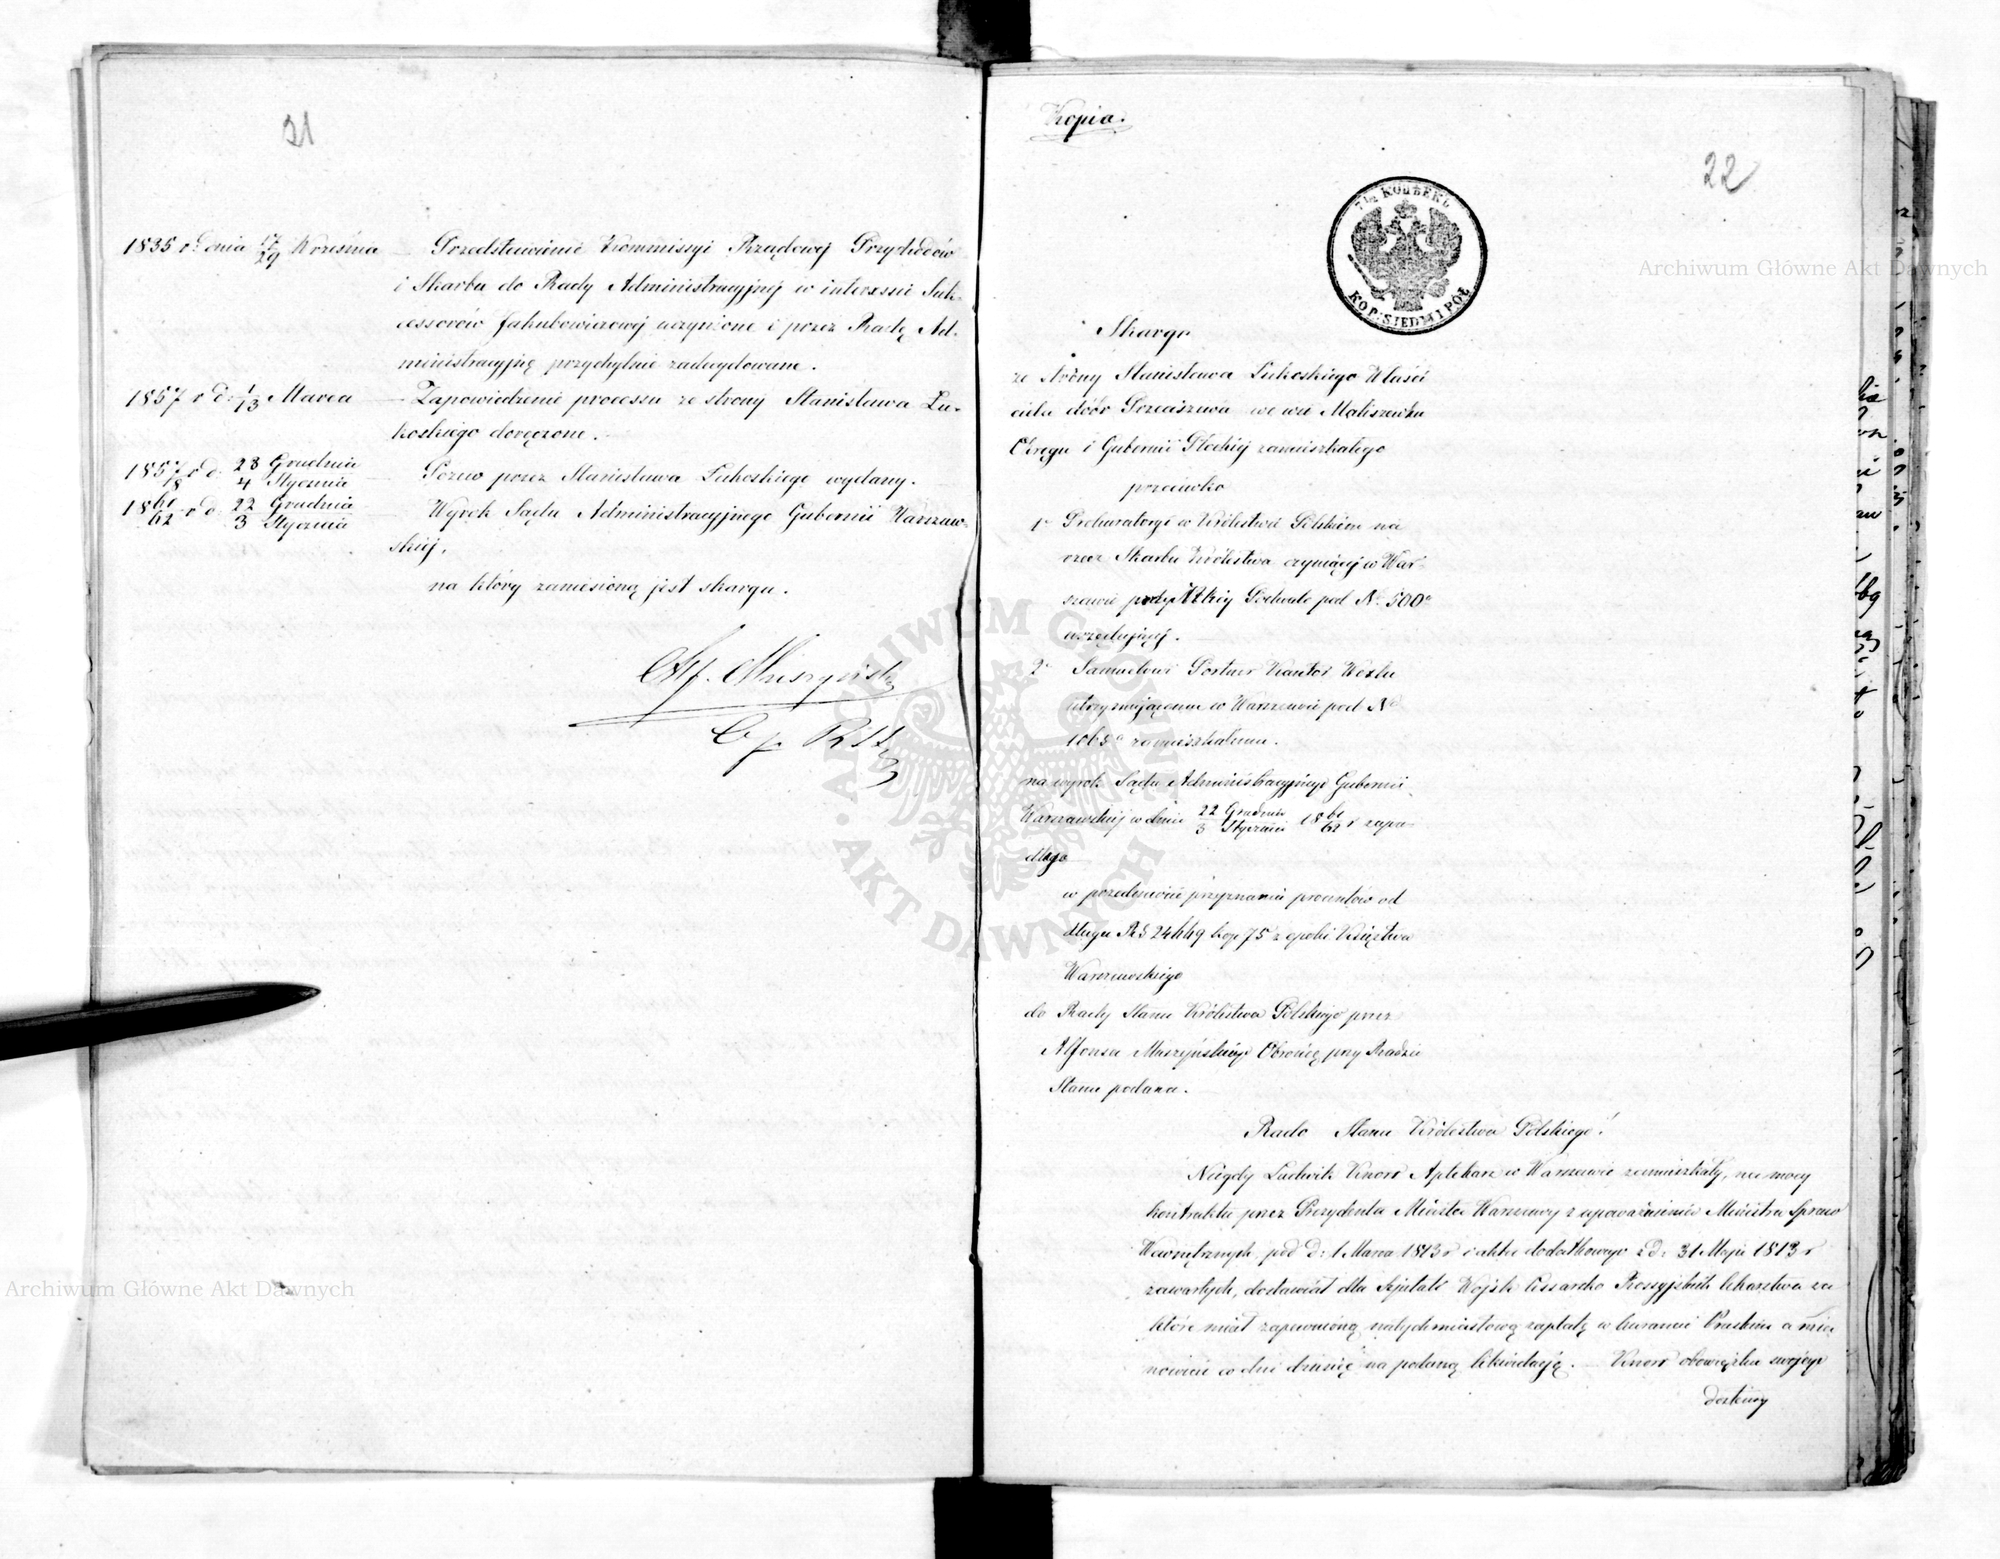 21
1835 r. dnia 17/29 Września — Przedstawienie Kommissyi Rządowej Przychodów
i Skarbu do Rady Administracyjnej w interessie Suk-
cessorów Jakubowiczowej uczynione i przez Radę Ad-
ministracyjną przychylnie zadecydowane.
1857 r. d. 1/13 Marca — Zapowiedzenie processu ze strony Stanisława Łu-
koskiego doręczone.
1857/8 r. d. 23 Grudnia / 4 Stycznia — Pozew przez Stanisława Łukoskiego wydany.
1861/62 r. d. 22 Grudnia / 3 Stycznia — Wyrok Sądu Administracyjnego Gubernii Warszaw-
skiej.
na który zaniesioną jest skarga.
Alf. Muszyński
O. p. R. St.
Kopia.
22
7 1/2 КОПѢЕКЪ
KOP: SIEDM I PÓŁ
Skarga
ze strony Stanisława Łukoskiego Właści
ciela dóbr Przeciszewa we wsi Maliszewku
Okręgu i Gubernii Płockiej zamieszkałego
przeciwko
1o Prokuratoryi w Królestwie Polskim na
rzecz Skarbu Królestwa czyniącej w War-
szawie przy Ulicy pod No 500
urzędującej.
2o Samuelowi Portner Kantor Wexlu
utrzymującemu w Warszawie pod No
1065 a zamieszkałemu.
na wyrok Sądu Administracyjnego Gubernii
Warszawskiej w dniu 22 Grudnia / 3 Stycznia 1861/62 r. zapa-
dłego
w przedmiocie przyznania procentów od
długu RS 24449 kop 75 z epoki Księstwa
Warszawskiego
do Rady Stanu Królestwa Polskiego przez
Alfonsa Muszyńskiego Obrońcę przy Radzie
Stanu podana.
Rado Stanu Królestwa Polskiego!
Niegdy Ludwik Knorr Aptekarz w Warszawie zamieszkały, na mocy
kontraktu przez Prezydenta Miasta Warszawy z upoważnienia Ministra Spraw
Wewnętrznych, pod d: 1 Marca 1813 r i aktu dodatkowego z d: 31 Maja 1813 r
zawartych, dostawiał dla Szpitali Wojsk Cesarsko Rossyjskich lekarstwa za
które miał zapewnioną natychmiastową zapłatę w kurancie Pruskim a mia
nowicie co dni dziesięć na podaną likwidacją. — Knorr obowiązku swojego
dostawy
ARCHIWUM GŁÓWNE AKT DAWNYCH
Archiwum Główne Akt Dawnych
Archiwum Główne Akt Dawnych